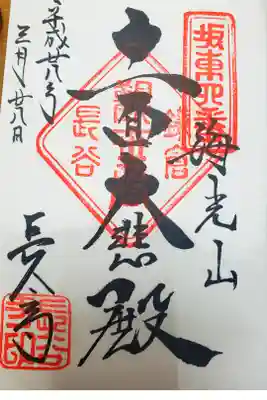 坂東四番
海光山
鎌倉
十一面大悲殿
長谷
平成廿八年
三月廿八日
長谷寺